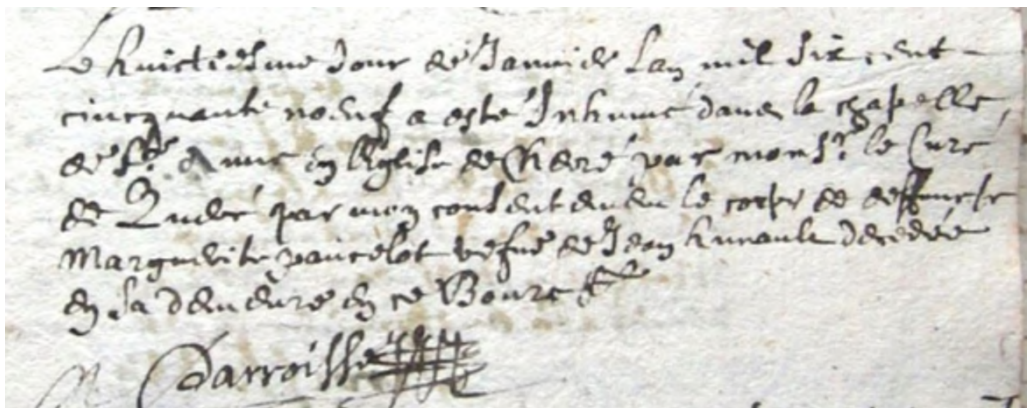 Le huictiesme Jour de Janvier Lan mil six cent
cinquante noeuf a esté Inhumé dans la chapelle
de Ste Anne en leglise de Cheré par monsr. le Curé
de par mon consentement le corps de deffuncte
Marguerite vancelot vefue de Jean hunault decedée
en sa demeure en ce Bourc
Darroisse